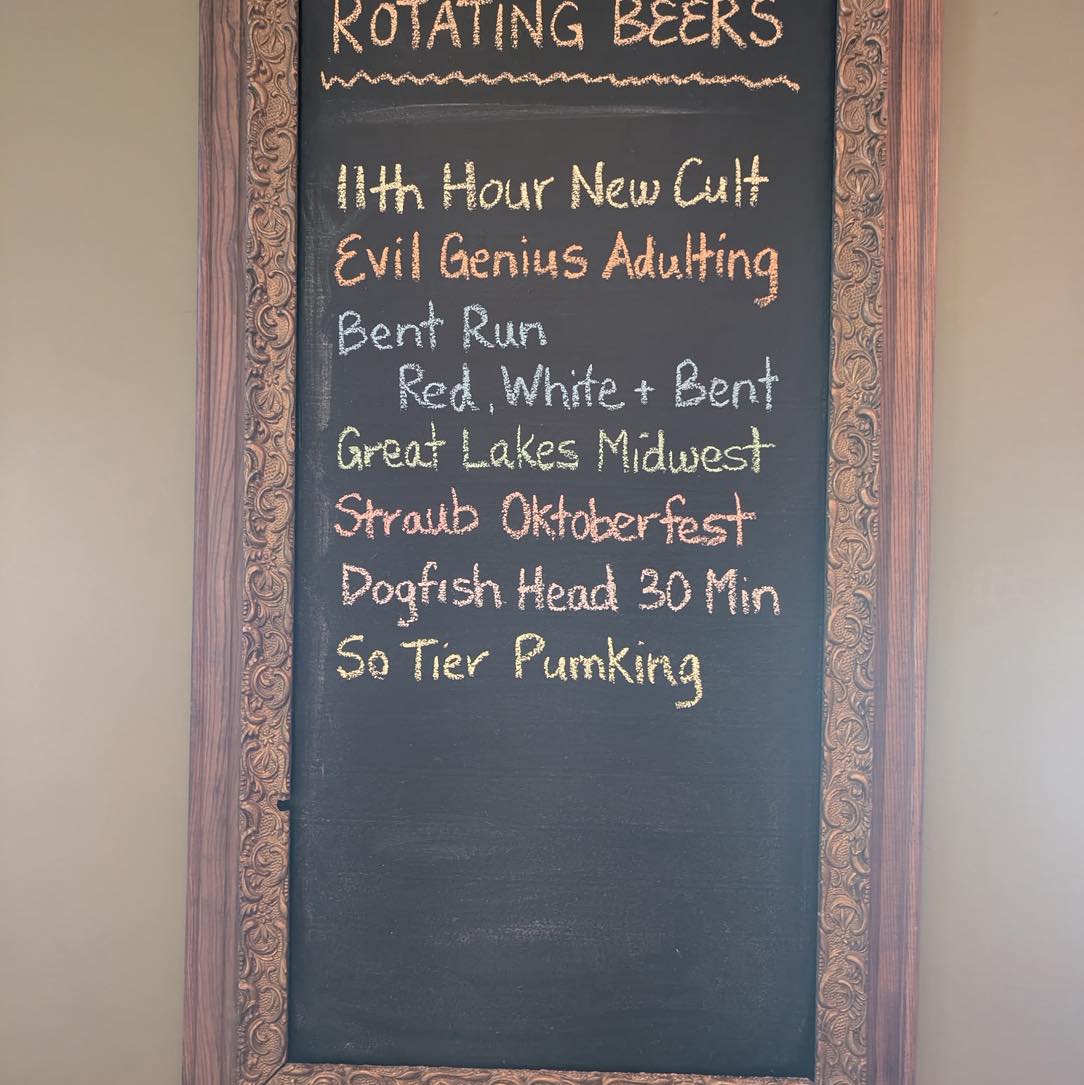 ROTATING BEERS
11th Hour New Cult
Evil Genius Adulting
Bent Run
Red, White + Bent
Great Lakes Midwest
Straub Oktoberfest
Dogfish Head 30 Min
So Tier Pumking